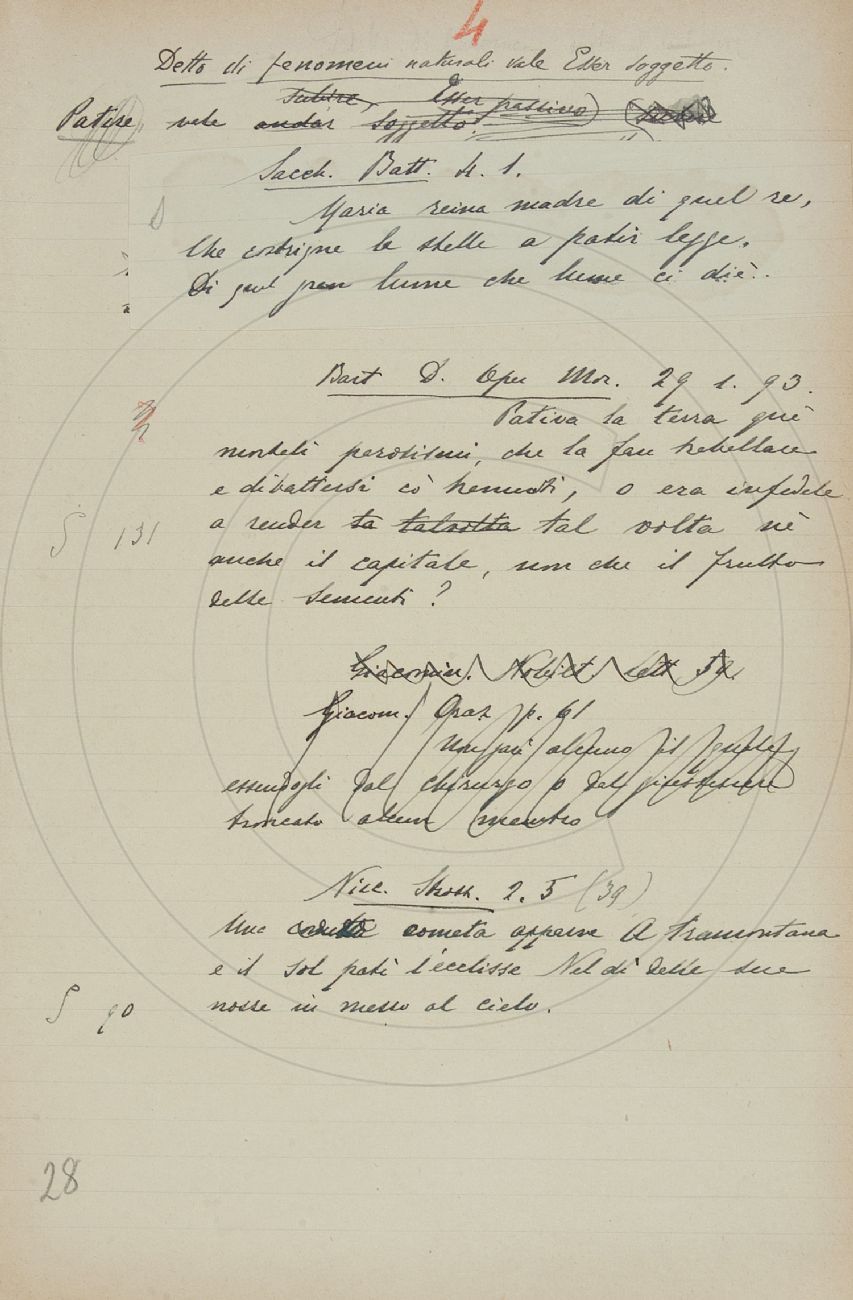 4
Detto di fenomeni naturali vale Esser soggetto.
subire, Esser passivo)
Patire, vale andar soggetto.
Sacch. Batt. 4. 1.
Maria reina madre di quel re,
Che costrigne le stelle a patir legge,
Di quel gran lume che lume ci diè..
Bart D. Oper Mor. 29 1. 93.
Pativa la terra que'
mortali parosismi, che la fan trabellare
e dibattersi co' tremuoti, o era infedele
a render ta talvolta tal volta nè
S 131
anche il capitale, non che il frutto
delle sementi?
Giacomin. Nobilt lett
Giacom. Oraz p. 61
Non già alcuno il quale
essendogli dal chirurgo o dal giustiziere
troncato alcun membro
Nicc. Strozz. 2. 5 (39)
Una cometa apparve A tramontana
e il sol patì l'ecclisse Nel dì delle sue
S 90
nozze in mezzo al cielo.
28